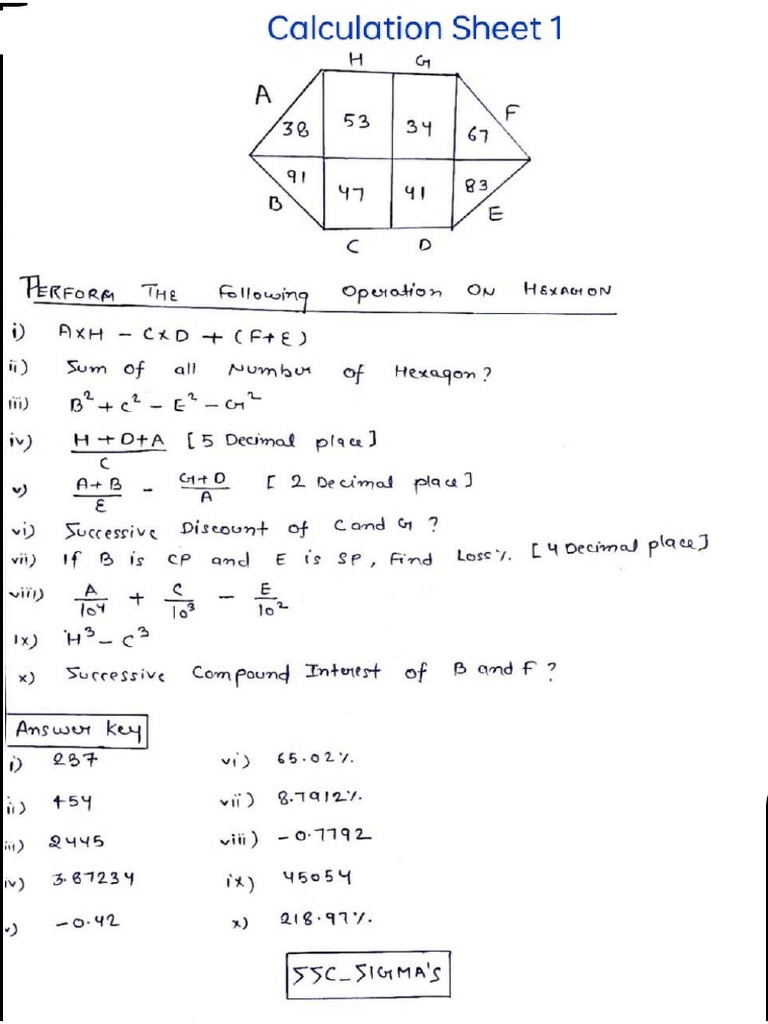 Calculation Sheet 1
H G
A F
38 53 34 67
91 47 41 83
B E
C D
PERFORM THE Following Operation ON HEXAGON
i) A×H - C×D + (F+E)
ii) Sum of all Number of Hexagon?
iii) B² + C² - E² - G²
iv) (H+D+A)/C [5 Decimal place]
v) (A+B)/E - (G+D)/A [2 Decimal place]
vi) Successive Discount of C and G ?
vii) If B is CP and E is SP, Find Loss%. [4 Decimal place]
viii) A/10⁴ + C/10³ - E/10²
ix) H³ - C³
x) Successive Compound Interest of B and F ?
Answer Key
i) 237 vi) 65.02%.
ii) 454 vii) 8.7912%.
iii) 2445 viii) -0.7792
iv) 3.87234 ix) 45054
v) -0.42 x) 218.97%.
SSC_SIGMA'S